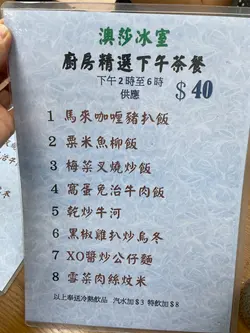 澳莎冰室
廚房精選下午茶餐
下午2時至6時
供應
$40
1 馬來咖喱豬扒飯
2 粟米魚柳飯
3 梅菜叉燒炒飯
4 窩蛋免治牛肉飯
5 乾炒牛河
6 黑椒雞扒炒烏冬
7 XO醬炒公仔麵
8 雪菜肉絲炆米
以上奉送冷熱飲品 汽水加$3 特飲加$8